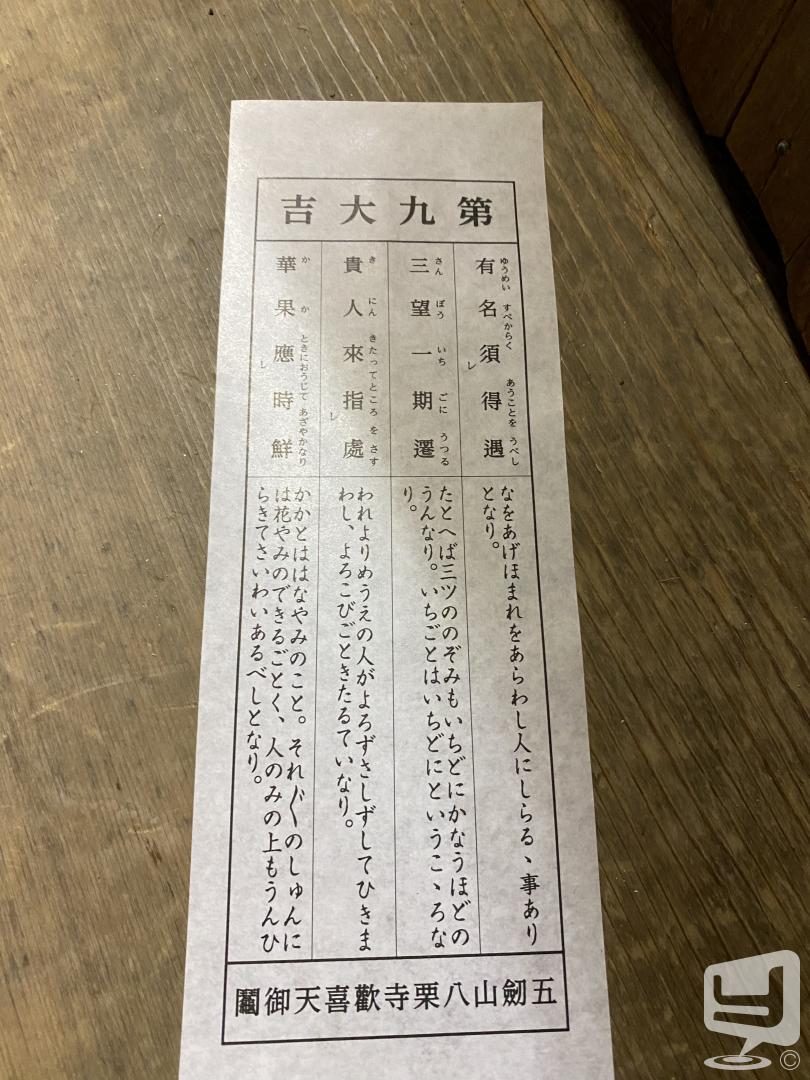 第九大吉
有名須レ得遇
ゆうめい すべからく あうことを うべし
なをあげほまれをあらわし人にしらるゝ事あり
となり。
三望一期遷
さん ぼう いち ごに うつる
たとへば三ツののぞみもいちどにかなうほどの
うんなり。いちごとはいちどにというこゝろな
り。
貴人來指レ處
き にん きたってところ を さす
われよりめうえの人がよろずさしずしてひきま
わし、よろこびごときたるていなり。
華果應レ時鮮
か か ときにおうじて あざやかなり
かかとははなやみのこと。それ〴〵のしゅんに
は花やみのできるごとく、人のみの上もうんひ
らきてさいわいあるべしとなり。
五劒山八栗寺歡喜天御鬮